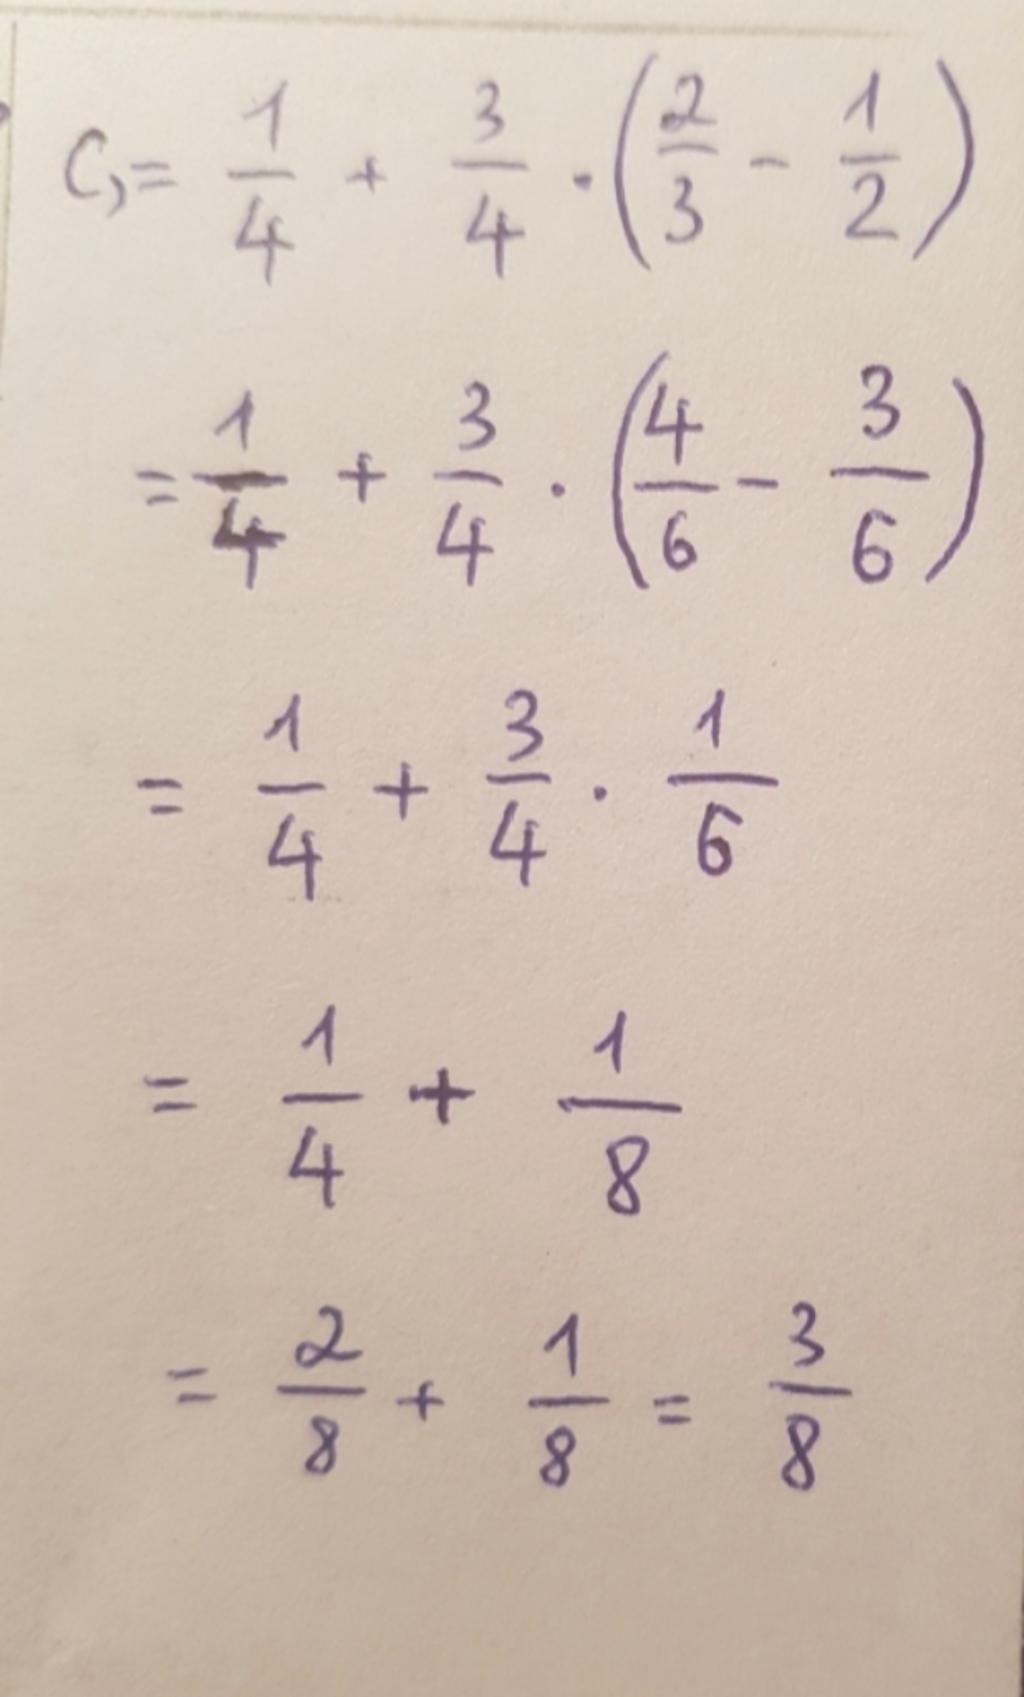 C, = 1/4 + 3/4 · (2/3 - 1/2)
= 1/4 + 3/4 · (4/6 - 3/6)
= 1/4 + 3/4 · 1/6
= 1/4 + 1/8
= 2/8 + 1/8 = 3/8